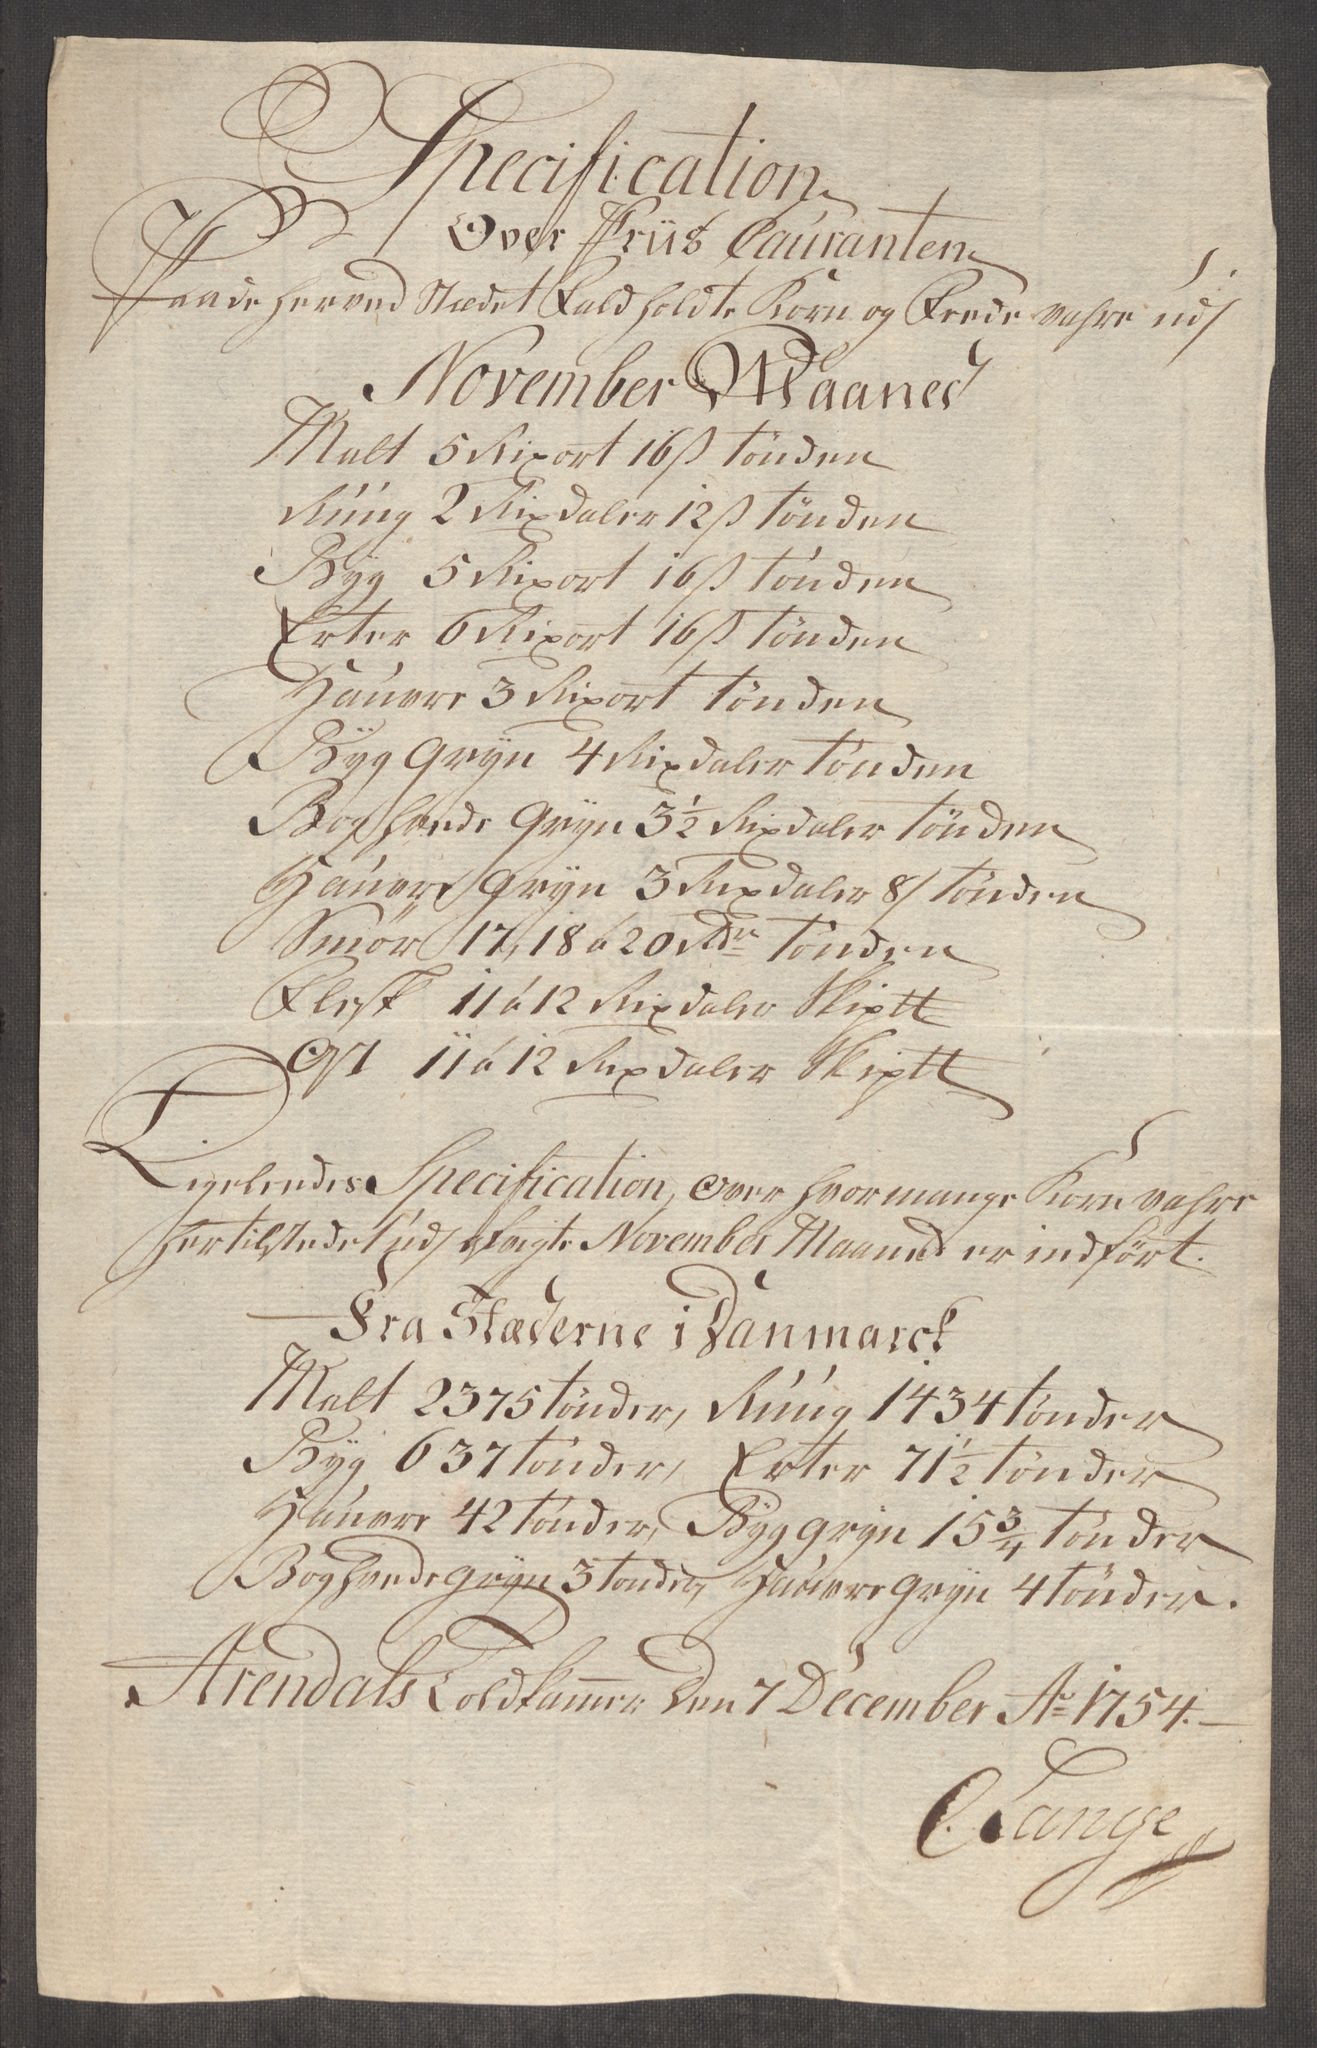 Specification
Over Priis Couranten
Paa de her ved Stædet Fald holdte Korn og Fede vahre udj
November Maaned
Malt 5 Rixort 16 ß tønden
Rúúg 2 Rixdaler 12 ß tønden
Byg 5 Rixort 16 ß tønden
Erter 6 Rixort 16 ß tønden
Haúvre 3 Rixort tønden
Byg gryn 4 Rixdaler tønden
Boghvede gryn 3½ Rixdaler tønden
Haúvre gryn 3 Rixdaler 8 ß tønden
Smør 17, 18 á 20 Rdr tønden
Flesk 11 á 12 Rixdaler Skiptt
Ost 11 á 12 Rixdaler Skiptt
Ligeledes Specification, over hvor mange Korn vahre
her til stedet udj Næste November Maaned er indført.
Fra Stæderne i Danmarck
Malt 2375 tønder, Rúúg 1434 tønder
Byg 637 tønder, Erter 71½ tønder
Haúvre 42 tønder, Byg gryn 15¾ tønder
Boghvede gryn 3 tønder, Haúvre gryn 4 tønder.
Arendals Toldkammer den 7 December Ao 1754.
C. Lange